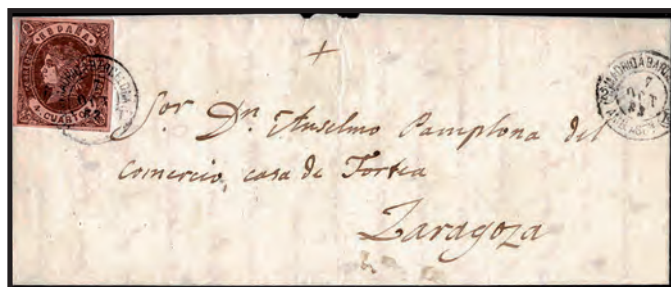 ESPAÑA
4 CUARTOS
7
OCT
63
Sor. Dn. Anselmo Pamplona del
comercio, casa de Fortea
Zaragoza